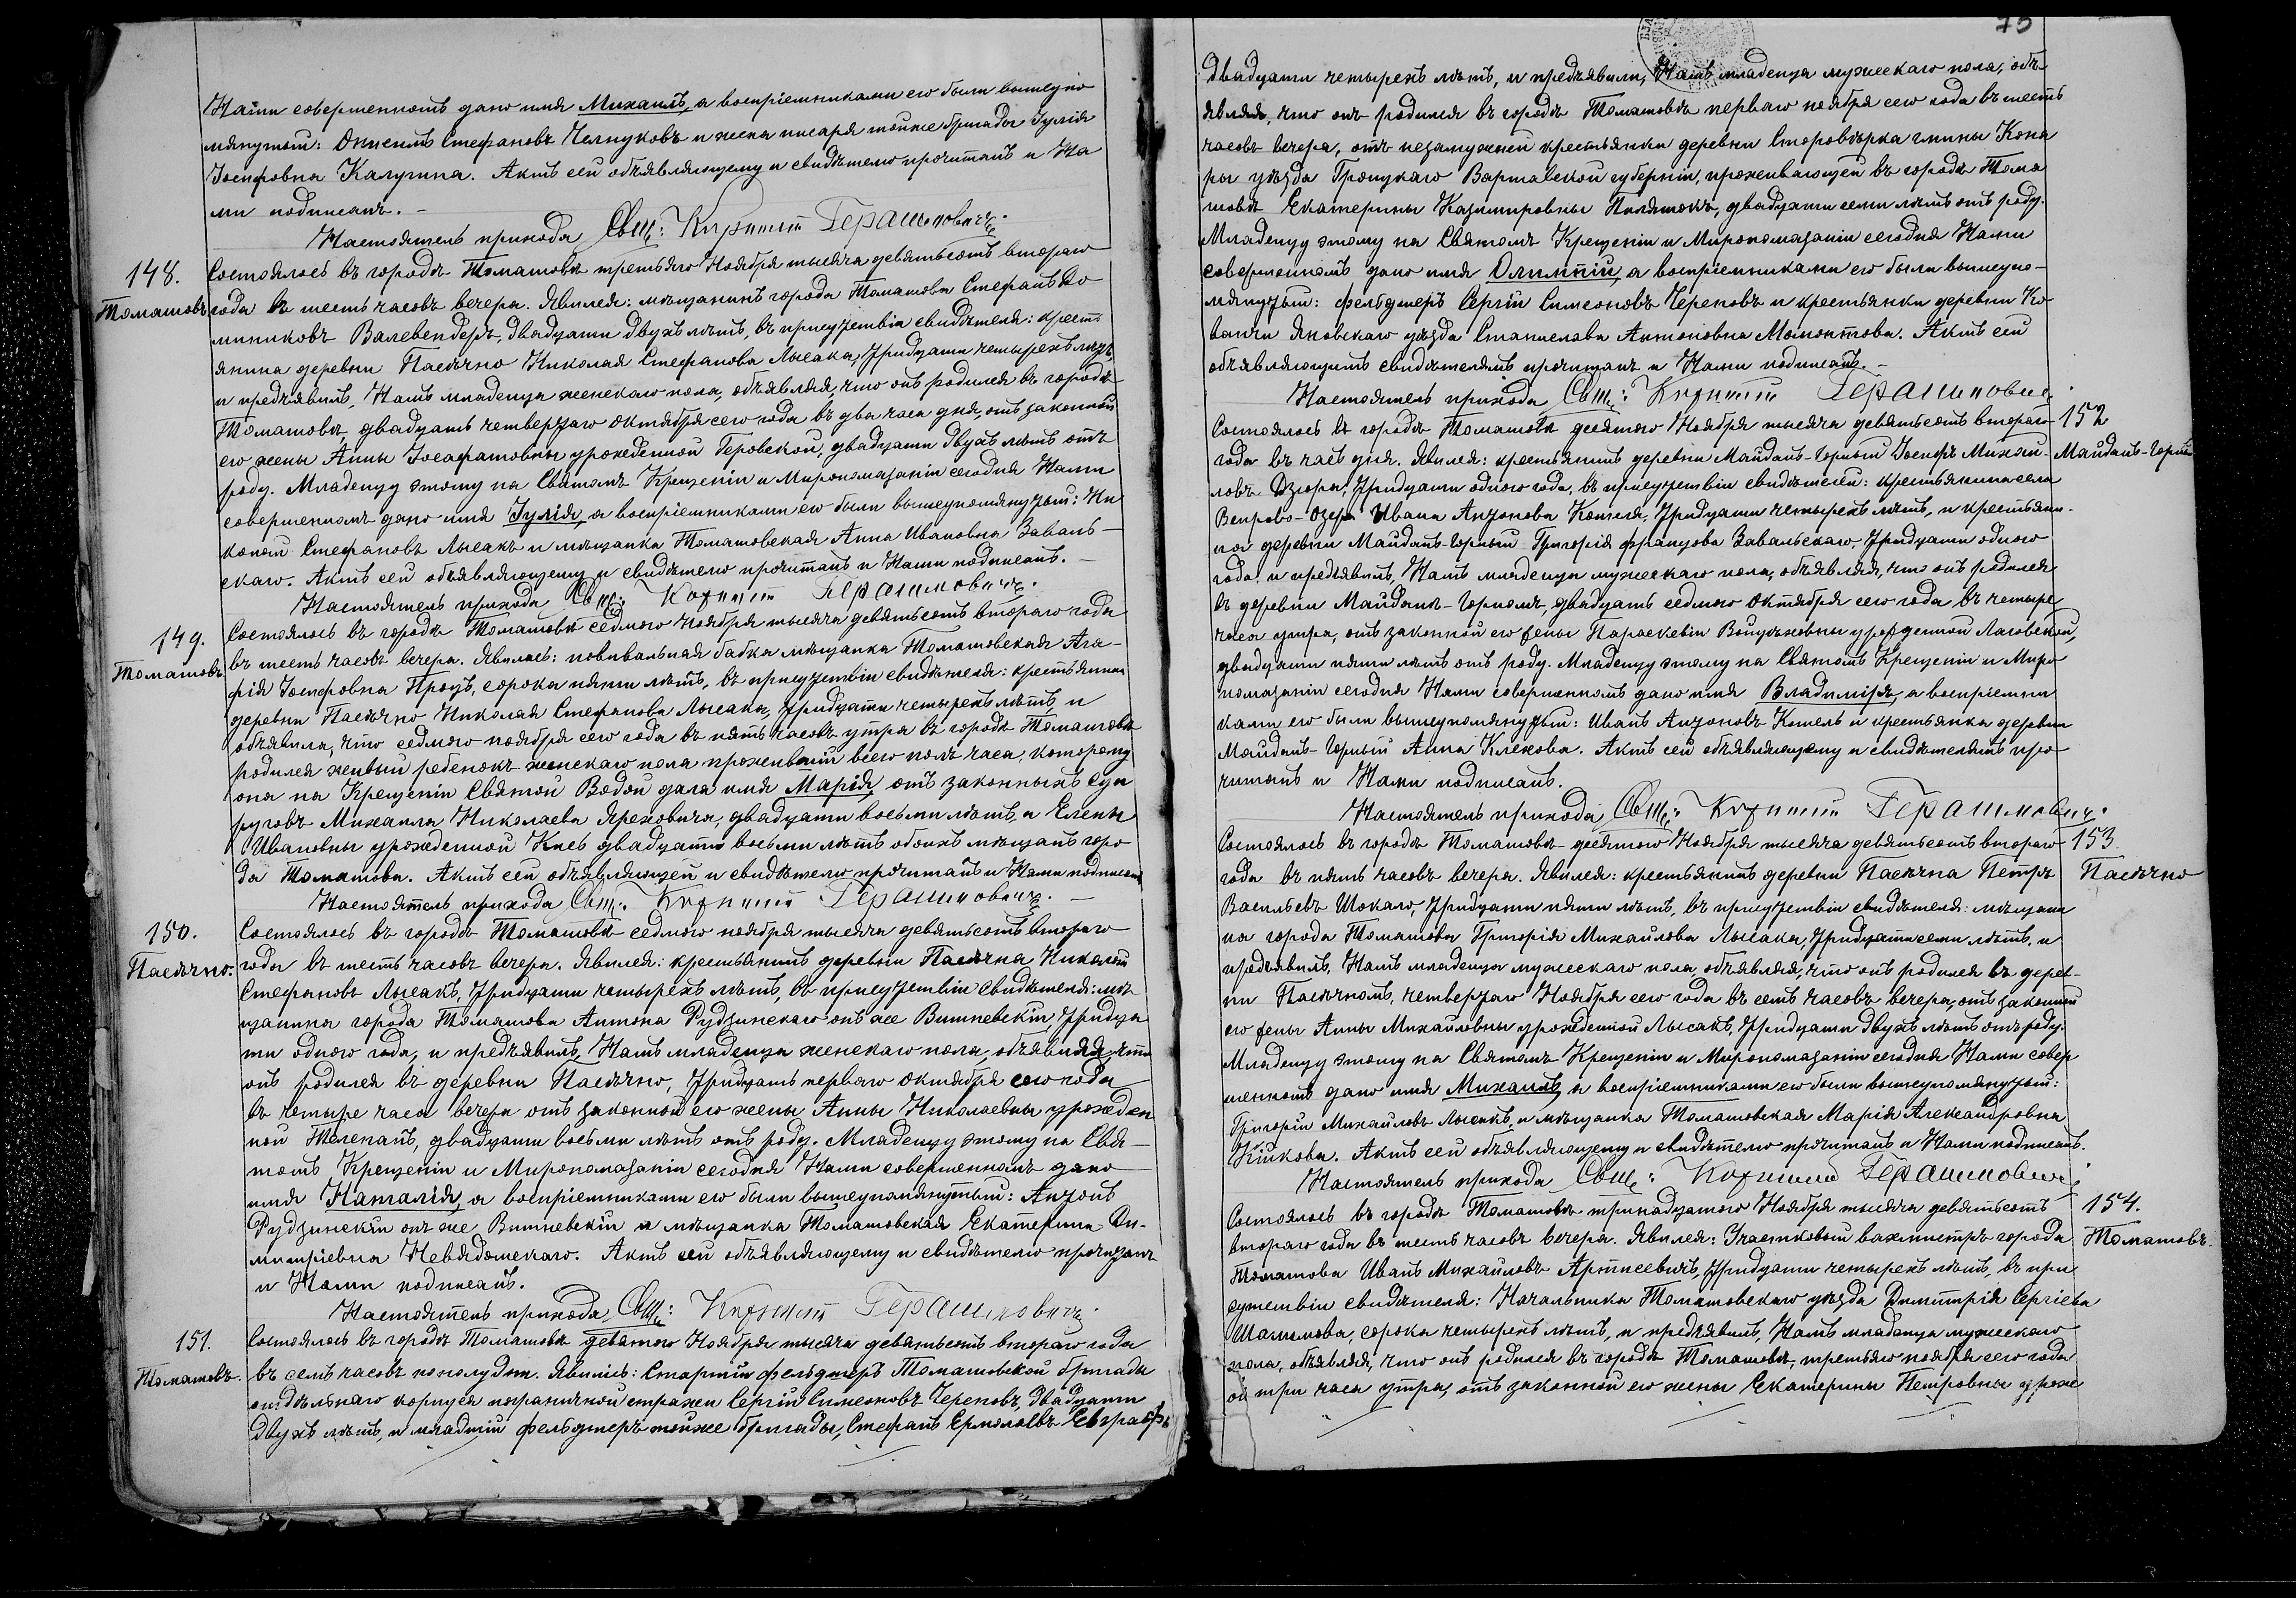 Нами совершенномъ дано имя Михаилъ, а воспріемниками его были вышеупо
мянутый: Стефановъ Челнуковъ и жена писаря тойже бригады Іулія
Іосифовна Калугина. Актъ сей объявляющему и свидѣтелю прочитанъ и На
ми подписанъ. –
Настоятель прихода Свщ: Герашимовичъ.
148.
Томашовъ
Состоялось въ городѣ Томашовѣ третьяго Ноября тысяча девятьсотъ второго
года въ шесть часовъ вечера. Явился: мѣщанинъ города Томашова Стефанъ До
миниковъ Валевендеръ, двадцати двухъ лѣтъ, въ присутствіи свидѣтеля: крестъ
янина деревни Пасѣчно Николая Стефанова Лысака, тридцати четырехъ лѣтъ,
и предъявилъ Намъ младенца женскаго пола, объявляя, что онъ родился въ городѣ
Томашовѣ, двадцать четвертаго Октября сего года въ два часа дня, отъ законной
его жены Анны Іосафатовны урожденной Геровской, двадцати двухъ лѣтъ отъ
роду. Младенцу этому на Святомъ Крещеніи и Миропомазаніи сегодня Нами
совершенномъ дано имя Іулія, а воспріемниками его были вышеупомянутый: Ни
колай Стефановъ Лысакъ и мѣщанка Томашовская Анна Ивановна Заваль–
скаго. Актъ сей объявляющему и свидѣтелю прочитанъ и Нами подписанъ. –
Настоятель прихода Свщ: Герашимовичъ.
149.
Томашовъ
Состоялось въ городѣ Томашовѣ седмого Ноября тысяча девятьсотъ второго года
въ шесть часовъ вечера. Явилась: повивальная бабка мѣщанка Томашовская Ага–
фія Іосифовна Процъ, сорока пяти лѣтъ, въ присутствіи свидѣтеля: крестьянина
деревни Пасѣчно Николая Стефанова Лысака, тридцати четырехъ лѣтъ, и
объявила, что седмого ноября сего года въ пять часовъ утра въ городѣ Томашовѣ
родился живый ребенокъ женскаго пола прожившій всего полъ часа, которому
она на Крещеніи Святой Водой дала имя Марія, отъ законныхъ суп
руговъ Михаила Николаева Яреховича, двадцати восьми лѣтъ, и Елены
Ивановны урожденной Киесъ двадцати восьми лѣтъ обоихъ мѣщанъ горо
да Томашова. Актъ сей объявляющей и свидѣтелю прочитанъ и Нами подписанъ
Настоятель прихода Свщ: Герашимовичъ. –
150.
Пасѣчно.
Состоялось въ городѣ Томашовѣ седмого ноября тысяча девятьсотъ второго
года въ шесть часовъ вечера. Явился: крестьянинъ деревни Пасѣчна Николай
Стефановъ Лысакъ, тридцати четырехъ лѣтъ, въ присутствіи свидѣтеля: мѣ
щанина города Томашова Антона Рудзинскаго онъ же Вишневскій тридца
ти одного года, и предъявилъ Намъ младенца женскаго пола, объявляя, что
онъ родился въ деревни Пасѣчно, тридцать перваго Октября сего года
въ четыре часа вечера отъ законной его жены Анны Николаевны урожден
ной Телепанъ, двадцати восьми лѣтъ отъ роду. Младенцу этому на Свя–
томъ Крещеніи и Миропомазаніи сегодня Нами совершенномъ дано
имя Наталія, а воспріемниками его были вышеупомянутый: Антонъ
Рудзинскій онъ же Вишневскій и мѣщанка Томашовская Екатерина Ди–
митріевна Невядомскаго. Актъ сей объявляющему и свидѣтелю прочитанъ
и Нами подписанъ.
Настоятель прихода Свщ: Герашимовичъ.
151.
Томашовъ.
Состоялось въ городѣ Томашовѣ девятого Ноября тысяча девятьсотъ второго года
въ семь часовъ пополудни. Явились: Старшій фельдшеръ Томашовской бригады
отдѣльнаго корпуса пограничной стражи Сергій Симеоновъ Череповъ, двадцати
двухъ лѣтъ, и младшій фельдшеръ тойже бригады, Стефанъ Ермолаевъ Евграфъ
75
двадцати четырехъ лѣтъ, и предъявили, Намъ младенца мужескаго пола, объ
являя, что онъ родился въ городѣ Томашовѣ перваго ноября сего года въ шесть
часовъ вечера, отъ незамужней крестьянки деревни гмины Кона
ры уѣзда Гроецкаго Варшавской губерніи, проживающей въ городѣ Тома
шовѣ Екатерины Казимировны двадцати семи лѣтъ отъ роду.
Младенцу этому на Святомъ Крещеніи и Миропомазаніи сегодня Нами
совершенномъ дано имя Олимпій, а воспріемниками его были вышеупо–
мянутый: фельдшеръ Сергій Симеоновъ Череповъ и крестьянка деревни Ко
валчи Яновскаго уѣзда Станислава Антоновна Момонтова. Актъ сей
объявляющимъ свидѣтелямъ прочитанъ и Нами подписанъ. –
Настоятель прихода Свщ: Герашимовичъ
152
Майданъ-Горный
Состоялось въ городѣ Томашовѣ десятого Ноября тысяча девятьсотъ второго
года въ часъ дня. Явился: крестьянинъ деревни Майданъ-Горный Іосифъ Михаи–
ловъ Дзюра, тридцати одного года, въ присутствіи свидѣтелей: крестьянина села
Вепрово-Озеро Ивана Антонова Котеля, тридцати четырехъ лѣтъ, и крестьяни–
на деревни Майданъ-Горный Григорія Францова Завальскаго, тридцати одного
года, и предъявилъ Намъ младенца мужескаго пола, объявляя, что онъ родился
въ деревни Майданѣ-Горномъ, двадцать седмого Октября сего года въ четыре
часа утра, отъ законной его жены Параскевіи Войцѣховны урожденной Лаговской,
двадцати пяти лѣтъ отъ роду. Младенцу этому на Святомъ Крещеніи и Миро
помазаніи сегодня Нами совершенномъ дано имя Владиміръ, а воспріемни
ками его были вышеупомянутый: Иванъ Антоновъ Котель и крестьянка деревни
Майданъ-Горный Анна Клекова. Актъ сей объявляющему и свидѣтелямъ про
читанъ и Нами подписанъ.
Настоятель прихода Свщ: Герашимовичъ.
153.
Пасѣчно
Состоялось въ городѣ Томашовѣ десятого Ноября тысяча девятьсотъ второго
года въ пять часовъ вечера. Явился: крестьянинъ деревни Пасѣчна Петръ
Васильевъ Шокало, тридцати пяти лѣтъ, въ присутствіи свидѣтеля: мѣщани
на города Томашова Григорія Михайлова Лысака, тридцати семи лѣтъ, и
предъявилъ, Намъ младенца мужескаго пола, объявляя, что онъ родился въ дерев–
ни Пасѣчномъ, четвертаго Ноября сего года въ семь часовъ вечера, отъ законной
его жены Анны Михайловны урожденной Лысакъ, тридцати двухъ лѣтъ отъ роду.
Младенцу этому на Святомъ Крещеніи и Миропомазаніи сегодня Нами совер
шенномъ дано имя Михаилъ, а воспріемниками его были вышеупомянутый:
Григорій Михайловъ Лысакъ, и мѣщанка Томашовская Марія Александровна
Кликова. Актъ сей объявляющему и свидѣтелю прочитанъ и Нами подписанъ.
Настоятель прихода Свщ: Герашимовичъ
154.
Томашовъ.
Состоялось въ городѣ Томашовѣ тринадцатого Ноября тысяча девятьсотъ
второго года въ шесть часовъ вечера. Явился: Участковый вахмистръ города
Томашова Иванъ Михайловъ Артисевичъ, тридцати четырехъ лѣтъ, въ при
сутствіи свидѣтеля: Начальника Томашовскаго уѣзда Димитрія Сергіева
Шатилова, сорока четырехъ лѣтъ, и предъявилъ, Намъ младенца мужескаго
пола, объявляя, что онъ родился въ городѣ Томашовѣ, третьяго ноября сего года
въ три часа утра, отъ законной его жены Екатерины Петровны урож